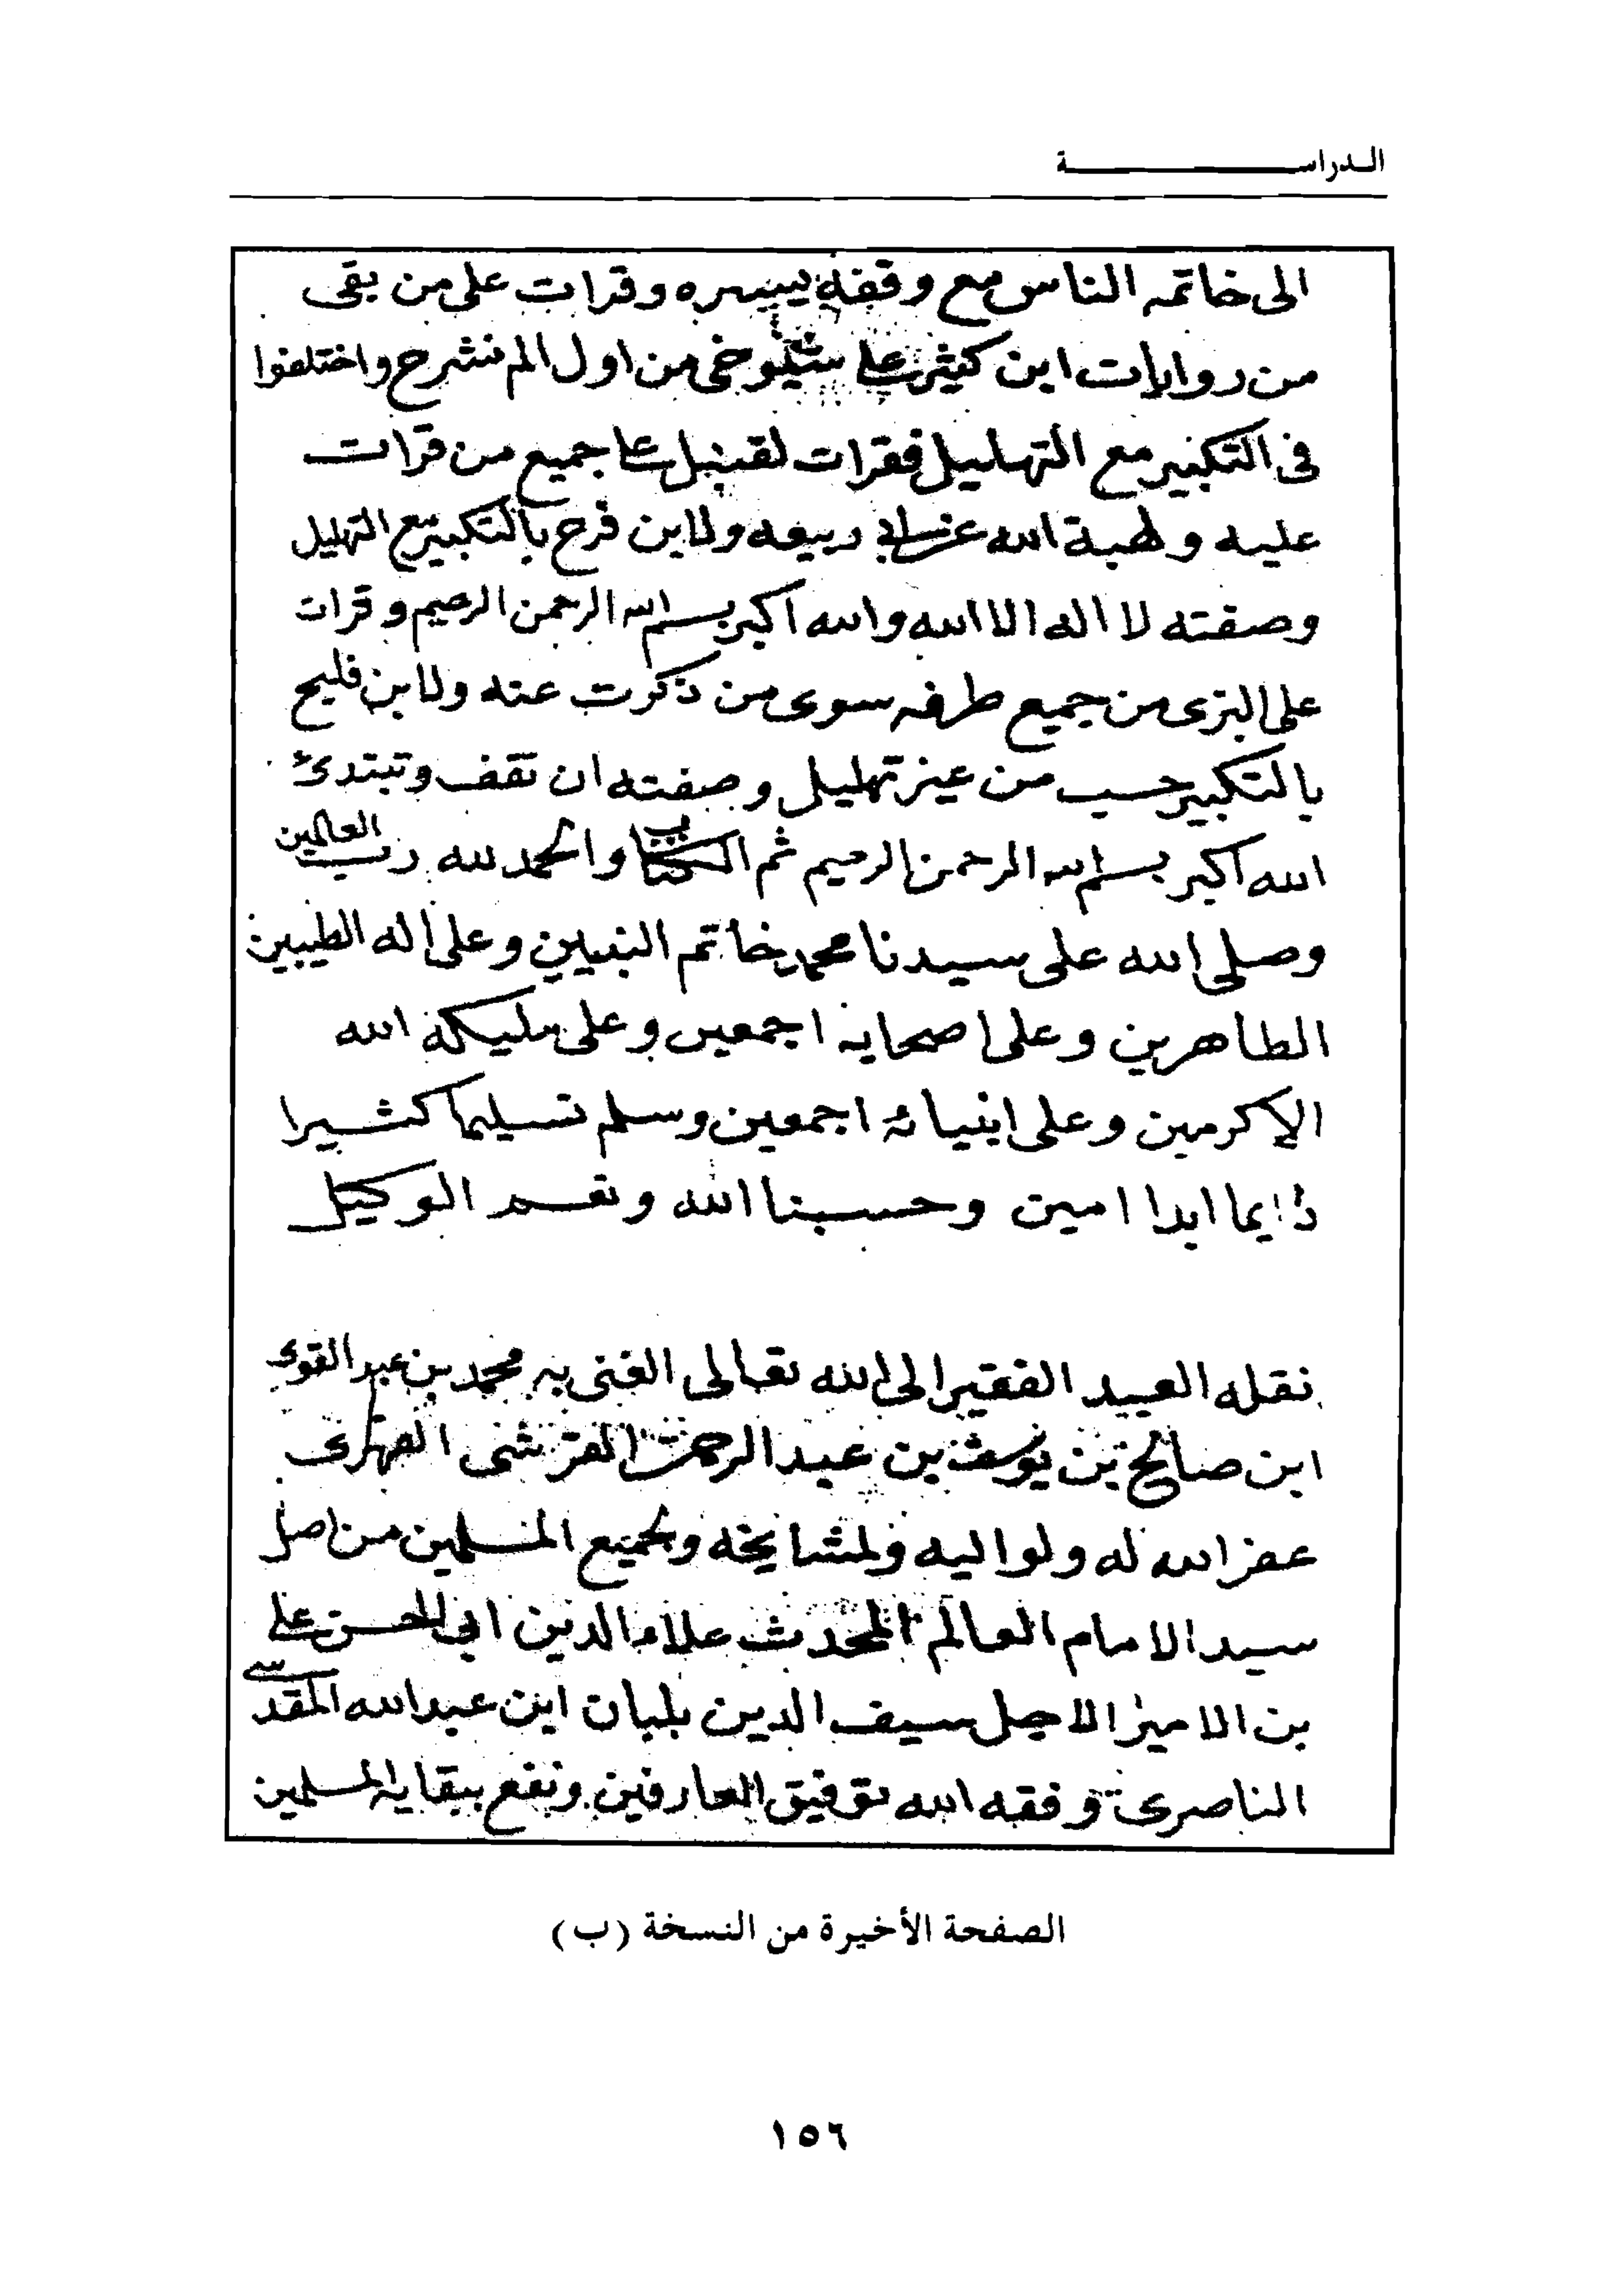 الـدراســـــــــــة
الى خاتمه الناس مع وقفه يسيره وقرات على من بقى
من روايات ابن كثير على شيوخى من اول الم نشرح واختلفوا
فى التكبير مع التهليل فقرات لقنبل على جميع من قرات
عليه ولهبة الله عن ابى ربيعه ولابن فرح بالتكبير مع التهليل
وصفته لا اله الا الله والله اكبر بسم الله الرحمن الرحيم وقرات
على البزى من جميع طرقه سوى من ذكرت عنه ولابن فليح
بالتكبير حسب من غير تهليل وصفته ان تقف وتبتدئ
الله اكبر بسم الله الرحمن الرحيم ثم الكتاب والحمد لله رب العالمين
وصلى الله على سيدنا محمد خاتم النبيين وعلى اله الطيبين
الطاهرين وعلى اصحابه اجمعين وعلى مليكة الله
الاكرمين وعلى انبيائه اجمعين وسلم تسليما كثيرا
دايما ابدا امين وحسبنا الله ونعم الوكيل
نقله العبيد الفقير الى الله تعالى الغنى به محمد بن عبد القوى
ابن صالح بن يوسف بن عبد الرحمن القرشى الفهرى
غفر الله له ولوالديه ولمشايخه ولجميع المسلمين من اصل
سيد الامام العالم المحدث علاء الدين ابى الحسن على
بن الامير الاجل سيف الدين بلبان ابن عبد الله المقدسى
الناصرى وفقه الله توفيق العارفين ونفع ببقايه المسلمين
الصفحة الأخيرة من النسخة (ب)
١٥٦